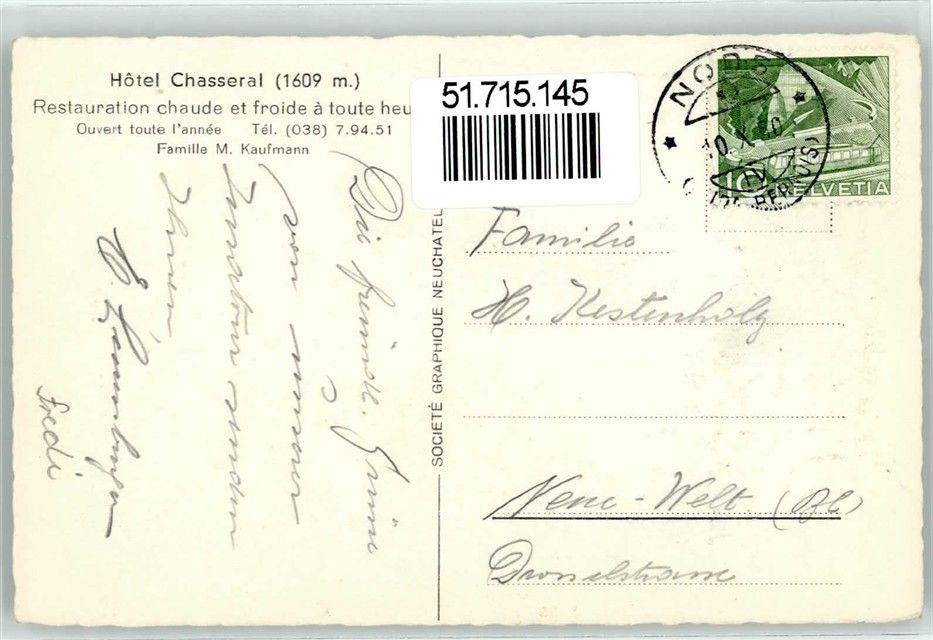 Hôtel Chasseral (1609 m.)
Restauration chaude et froide à toute heu
Ouvert toute l'année Tél. (038) 7.94.51
Famille M. Kaufmann
Die freundl. Grüsse
von unserer
senden
Ihnen
Fredi
SOCIETÉ GRAPHIQUE NEUCHATEL
51.715.145
NODS
10
HELVETIA
Familie
H. Kestenholz
Neue-Welt. (BL)
Drosselstrasse